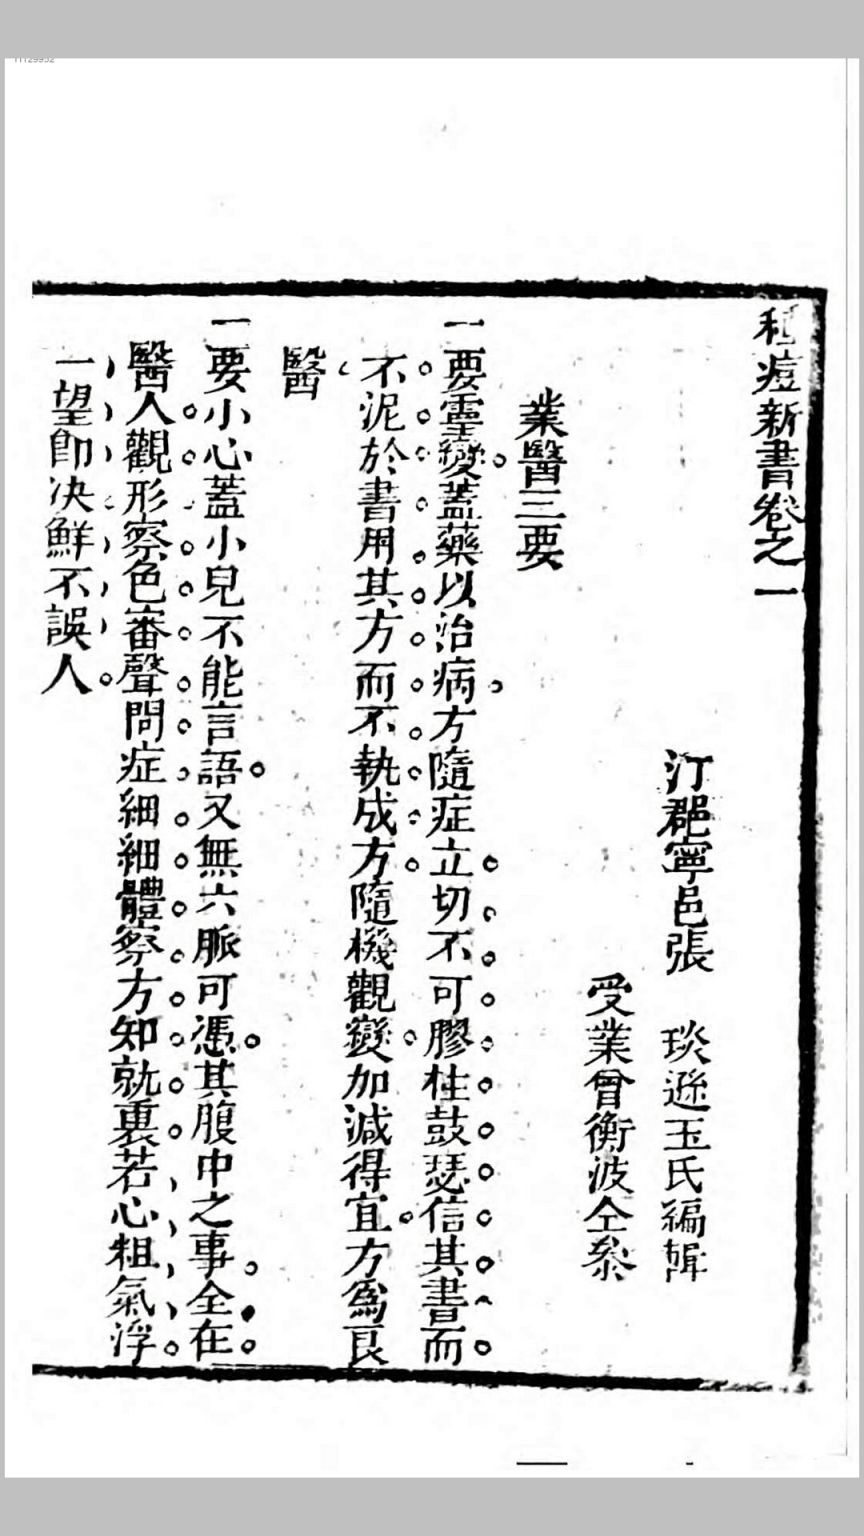 種痘新書卷之一
汀郡寧邑張　琰遜玉氏編輯
受業曾衡波仝叅
業醫三要
一要靈變蓋藥以治病方隨症立切不可膠柱鼓瑟信其書而
不泥於書用其方而不執成方隨機觀變加減得宜方爲良
醫
一要小心蓋小兒不能言語又無六脈可憑其腹中之事全在
醫人觀形察色審聲問症細細體察方知就裏若心粗氣浮
一望卽决鮮不誤人